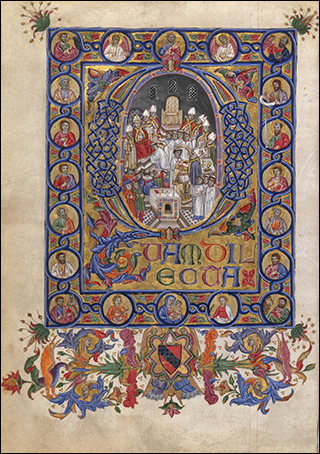 QUAM DIL
ECTA